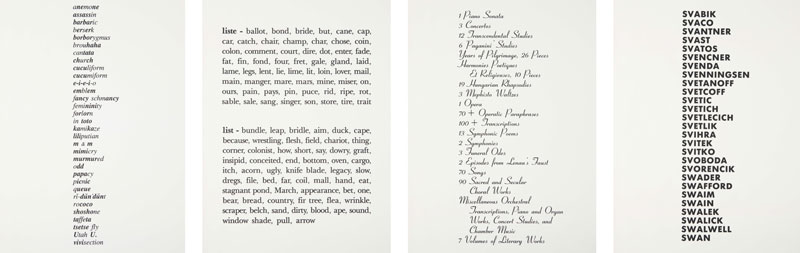 anemone
assassin
barbaric
berserk
borborygmus
brouhaha
cantata
church
cuculiform
cucumiform
e-i-e-i-o
emblem
fancy schmancy
femininity
forlorn
in toto
kamikaze
liliputian
m & m
mimicry
murmured
odd
papacy
picnic
queue
ri-dun'dunt
rococo
shoshone
taffeta
tsetse fly
Utah U.
vivisection
liste - ballot, bond, bride, but, cane, cap,
car, catch, chair, champ, char, chose, coin,
colon, comment, court, dire, dot, enter, fade,
fat, fin, fond, four, fret, gale, gland, laid,
lame, legs, lent, lie, lime, lit, loin, lover, mail,
main, manger, mare, mars, mine, miser, on,
ours, pain, pays, pin, puce, rid, ripe, rot,
sable, sale, sang, singer, son, store, tire, trait
list - bundle, leap, bridle, aim, duck, cape,
because, wrestling, flesh, field, chariot, thing,
corner, colonist, how, short, say, dowry, graft,
insipid, conceited, end, bottom, oven, cargo,
itch, acorn, ugly, knife blade, legacy, slow,
dregs, file, bed, far, coil, mall, hand, eat,
stagnant pond, March, appearance, bet, one,
bear, bread, country, fir tree, flea, wrinkle,
scraper, belch, sand, dirty, blood, ape, sound,
window shade, pull, arrow
1 Piano Sonata
3 Concertos
12 Transcendental Studies
6 Paganini Studies
Years of Pilgrimage, 26 Pieces
Harmonies Poetiques
Et Religieuses, 10 Pieces
19 Hungarian Rhapsodies
3 Mephisto Waltzes
1 Opera
70 + Operatic Paraphrases
100 + Transcriptions
13 Symphonic Poems
2 Symphonies
3 Funeral Odes
2 Episodes from Lenau's Faust
70 Songs
90 Sacred and Secular
Choral Works
Miscellaneous Orchestral
Transcriptions, Piano and Organ
Works, Concert Studies, and
Chamber Music
7 Volumes of Literary Works
SVABIK
SVACO
SVANTNER
SVAST
SVATOS
SVENCNER
SVENDA
SVENNINGSEN
SVETANOFF
SVETCOFF
SVETIC
SVETICH
SVETLECICH
SVETLIK
SVIHRA
SVITEK
SVITKO
SVOBODA
SVORENCIK
SWADER
SWAFFORD
SWAIM
SWAIN
SWALEK
SWALICK
SWALWELL
SWAN